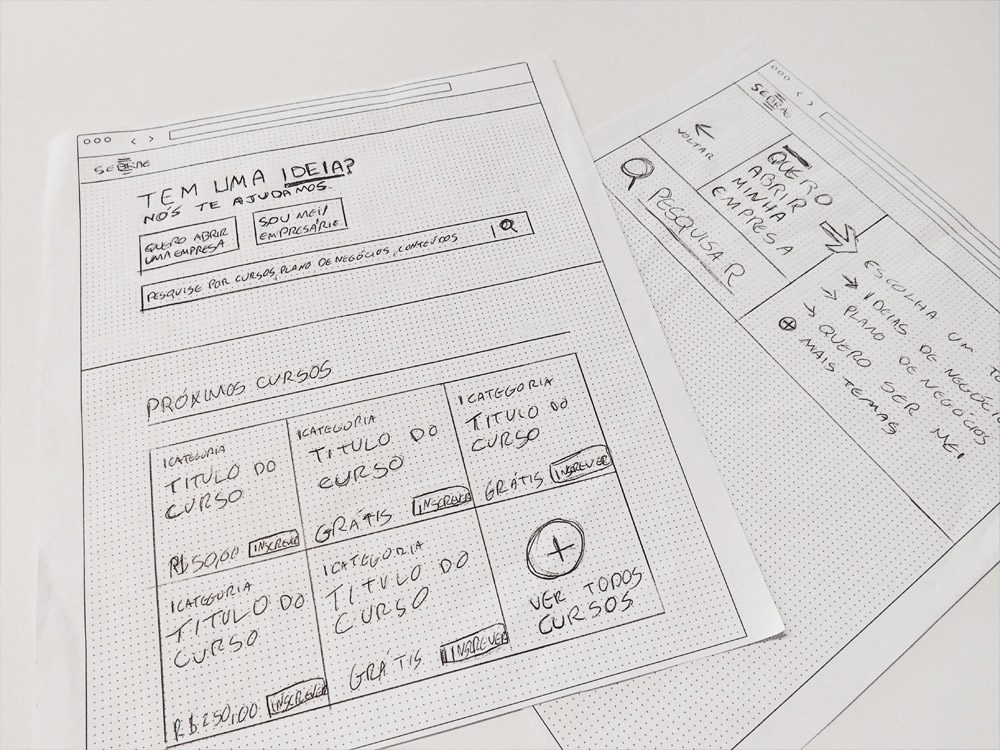 SEBRAE
TEM UMA IDEIA?
NÓS TE AJUDAMOS.
QUERO ABRIR
UMA EMPRESA
SOU MEI/
EMPRESÁRIE
PESQUISE POR CURSOS, PLANO DE NEGÓCIOS, CONTEÚDOS
PRÓXIMOS CURSOS
CATEGORIA
TITULO DO
CURSO
R$50,00 INSCREVER
CATEGORIA
TITULO DO
CURSO
GRÁTIS INSCREVER
CATEGORIA
TITULO DO
CURSO
GRÁTIS INSCREVER
CATEGORIA
TITULO DO
CURSO
R$250,00 INSCREVER
CATEGORIA
TITULO DO
CURSO
GRÁTIS INSCREVER
VER TODOS
CURSOS
SEBRAE
VOLTAR
QUERO
ABRIR
MINHA
EMPRESA
PESQUISAR
ESCOLHA UM TO
IDEIAS DE NEGÓCIO
PLANO DE NEGÓCIOS
QUERO SER MEI
MAIS TEMAS